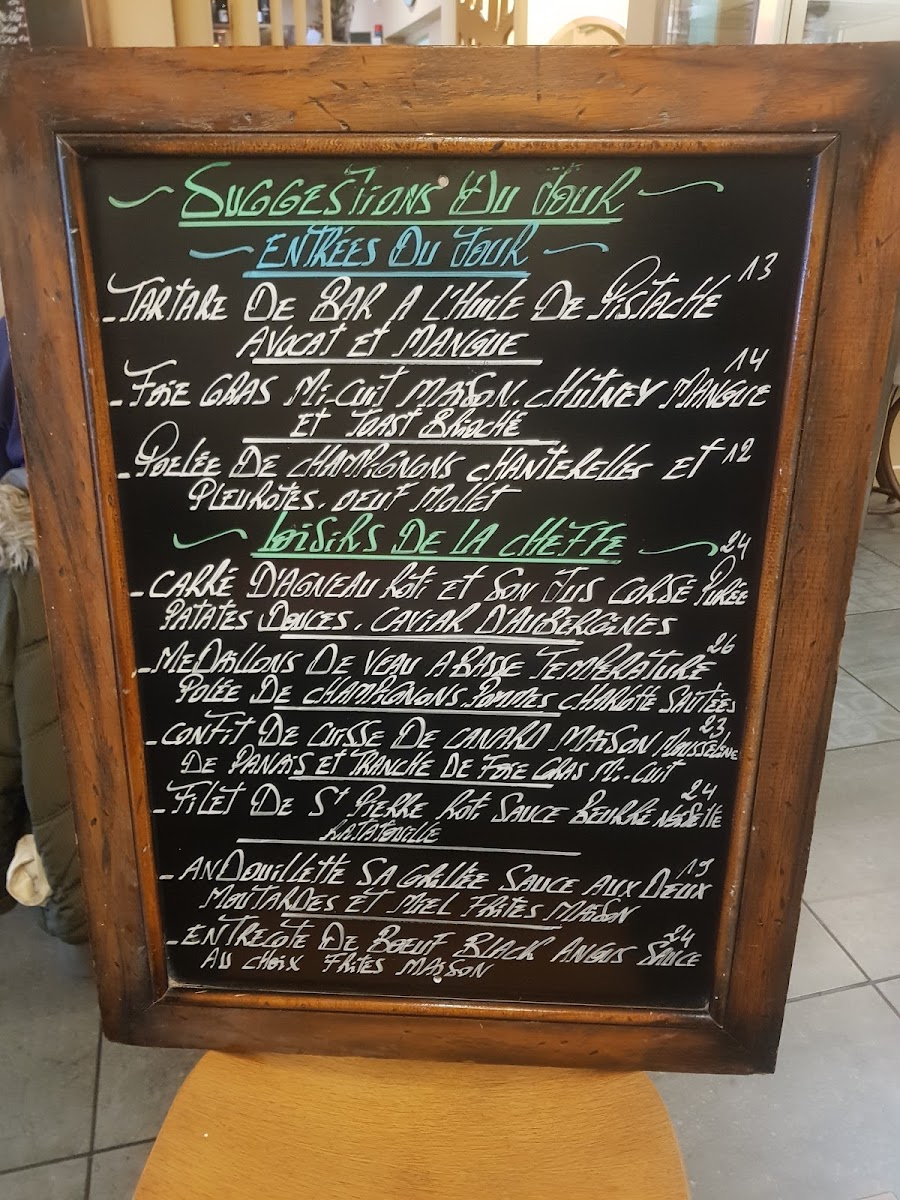 SUGGESTIONS DU JOUR
ENTRÉES DU JOUR
- TARTARE DE BAR A L'HUILE DE PISTACHE 13
AVOCAT ET MANGUE
- FOIE GRAS MI-CUIT MAISON. CHUTNEY MANGUE 14
ET TOAST BRIOCHÉ
- POELÉE DE CHAMPIGNONS CHANTERELLES ET 12
PLEUROTES. OEUF MOLLET
LOISIRS DE LA CHEFFE
- CARRÉ D'AGNEAU ROTI ET SON JUS CORSÉ PURÉE 24
PATATES DOUCES. CAVIAR D'AUBERGINES
- MEDAILLONS DE VEAU A BASSE TEMPERATURE 26
POLÉE DE CHAMPIGNONS. POMMES CHARLOTTE SAUTÉES
- CONFIT DE CUISSE DE CANARD MAISON MOUSSELINE 23
DE PANAIS ET TRANCHE DE FOIE GRAS MI-CUIT
- FILET DE ST PIERRE ROTI SAUCE BEURRE NOISETTE 24
RATATOUILLE
- ANDOUILLETTE 5A GRILLÉE SAUCE AUX DEUX 19
MOUTARDES ET MIEL FRITES MAISON
- ENTRECOTE DE BOEUF BLACK ANGUS SAUCE 24
AU CHOIX FRITES MAISON